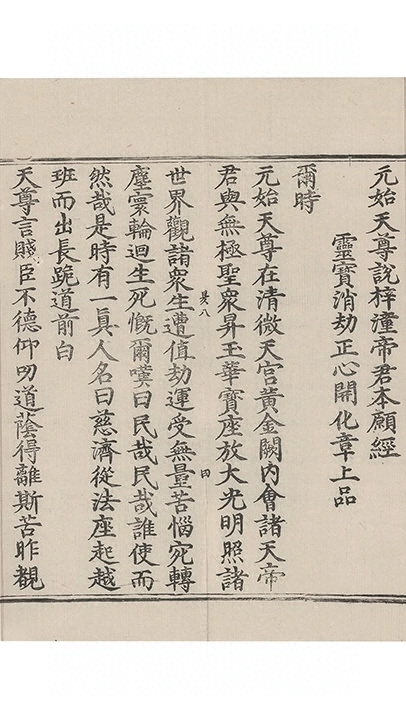 元始天尊說梓潼帝君本願經
靈寶消劫正心開化章上品
爾時
元始天尊在清微天宮黃金闕內會諸天帝
君與無極聖衆昇玉華寶座放大光明照諸
四
世界觀諸衆生遭值劫運受無量苦惱宛轉
塵寰輪迴生死慨爾嘆曰民哉民哉誰使而
然哉是時有一眞人名曰慈濟從法座起越
班而出長跪道前白
天尊言賤臣不德仰叨道蔭得離斯苦昨覩